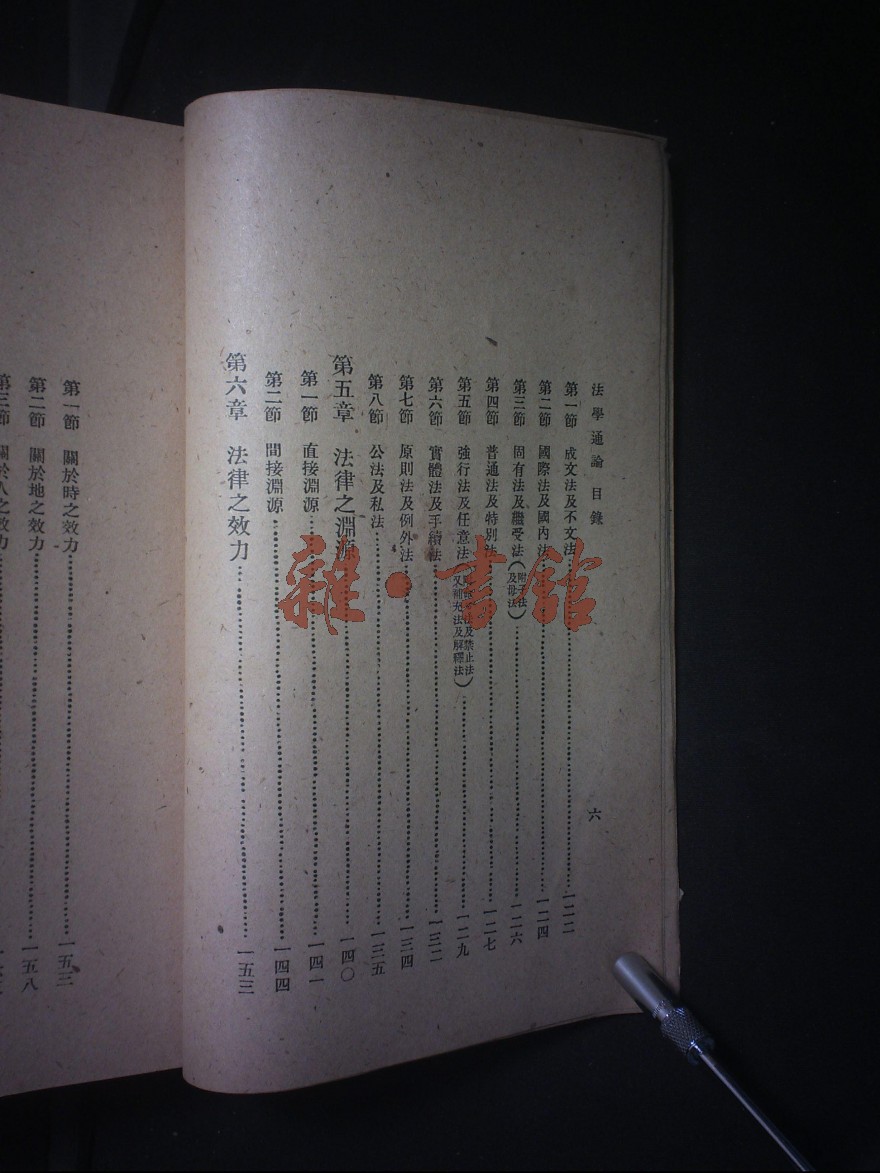 法學通論 目錄
六
第一節 成文法及不文法 一二二
第二節 國際法及國內法 一二四
第三節 固有法及繼受法(附子法及母法) 一二六
第四節 普通法及特別法 一二七
第五節 強行法及任意法 法及禁止法又補充法及解釋法) 一二九
第六節 實體法及手續法 一三二
第七節 原則法及例外法 一三四
第八節 公法及私法 一三五
第五章 法律之淵源 一四〇
第一節 直接淵源 一四一
第二節 間接淵源 一四四
第六章 法律之效力 一五三
第一節 關於時之效力 一五三
第二節 關於地之效力 一五八
第三節 關於人之效力
雜·書館